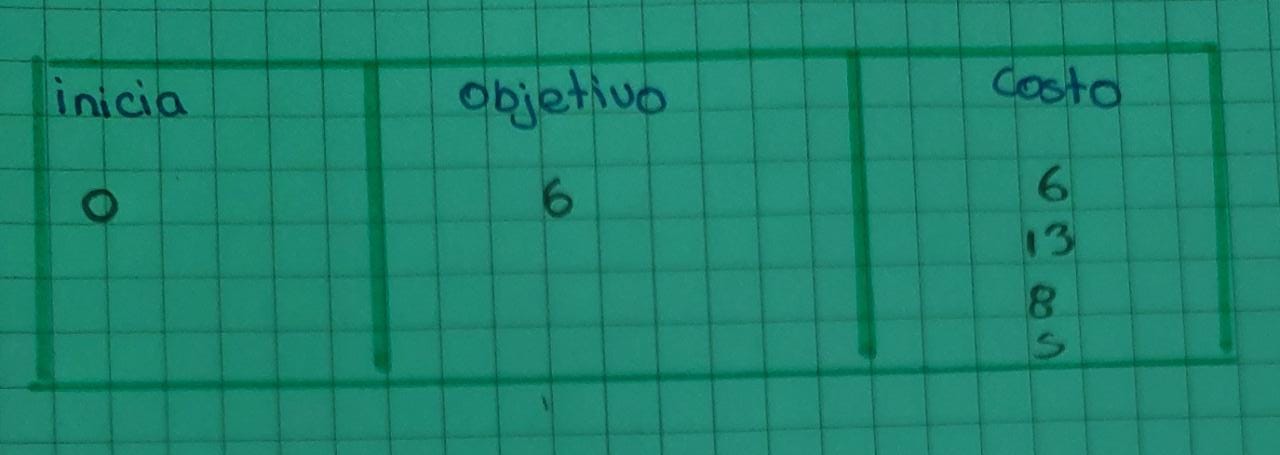 inicia objetivo Costo
0 6 6
13
8
5